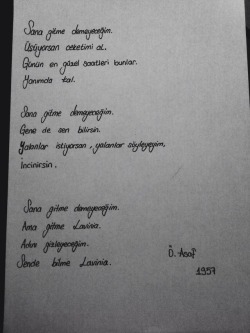 Sana gitme demeyeceğim.
Üşüyorsan ceketimi al.
Günün en güzel saatleri bunlar.
Yanımda kal.
Sana gitme demeyeceğim.
Gene de sen bilirsin.
Yalanlar istiyorsan, yalanlar söyleyeyim,
İncinirsin.
Sana gitme demeyeceğim.
Ama gitme Lavinia.
Adını gizleyeceğim.
Sende bilme Lavinia.
Ö. Asaf
1957